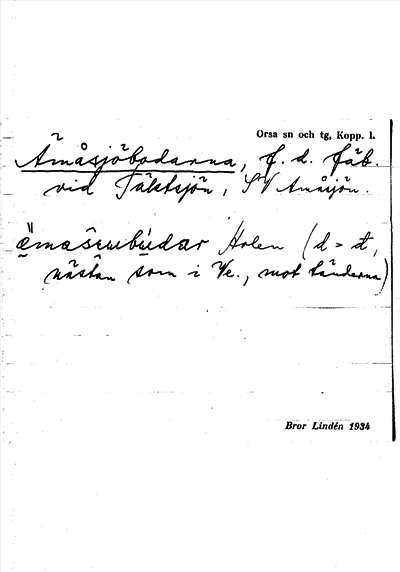 Orsa sn och tg, Kopp. l.
Åmåsjöbodarna, f. d. fäb.
vid Fälttsjön, SV Åmåsjön.
Holen (d = đ,
nästan som i Ve., mot tänderna)
Bror Lindén 1934